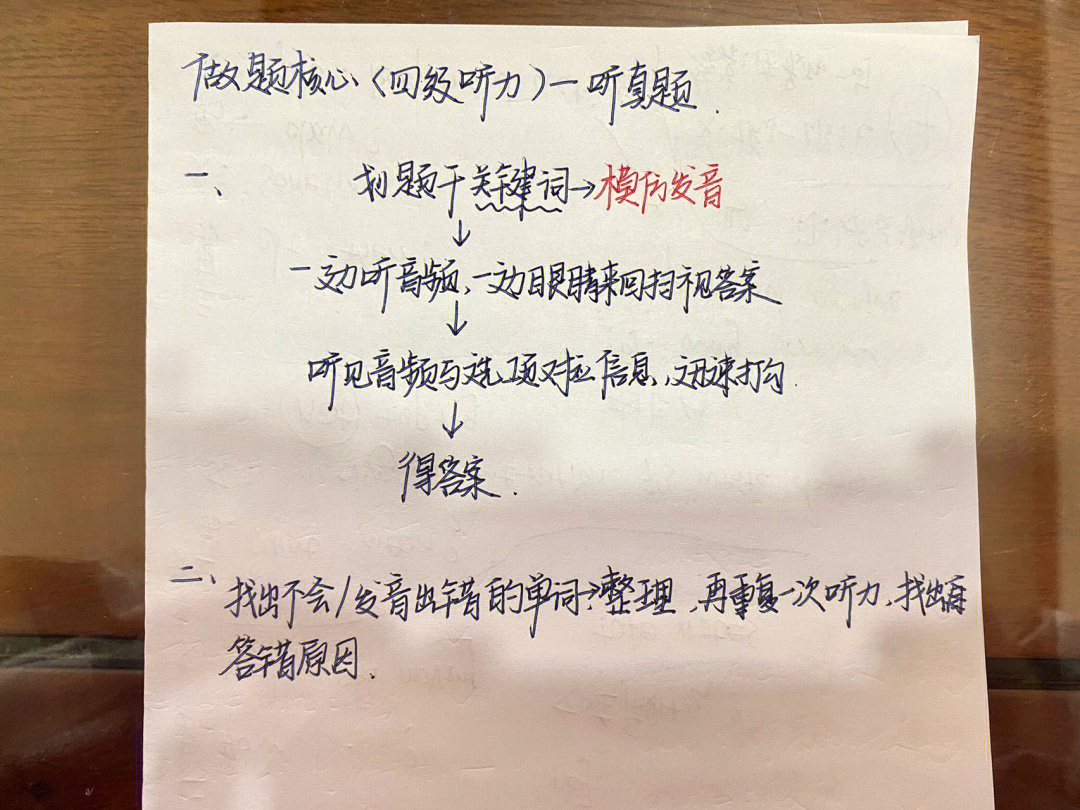 做题核心(四级听力)—听真题.
一、划题干关键词→模仿发音
↓
一边听音频,一边眼睛来回扫视答案
↓
听见音频与选项对应信息,迅速打勾.
↓
得答案.
二、找出不会/发音出错的单词→整理,再重复一次听力,找出
答错原因.